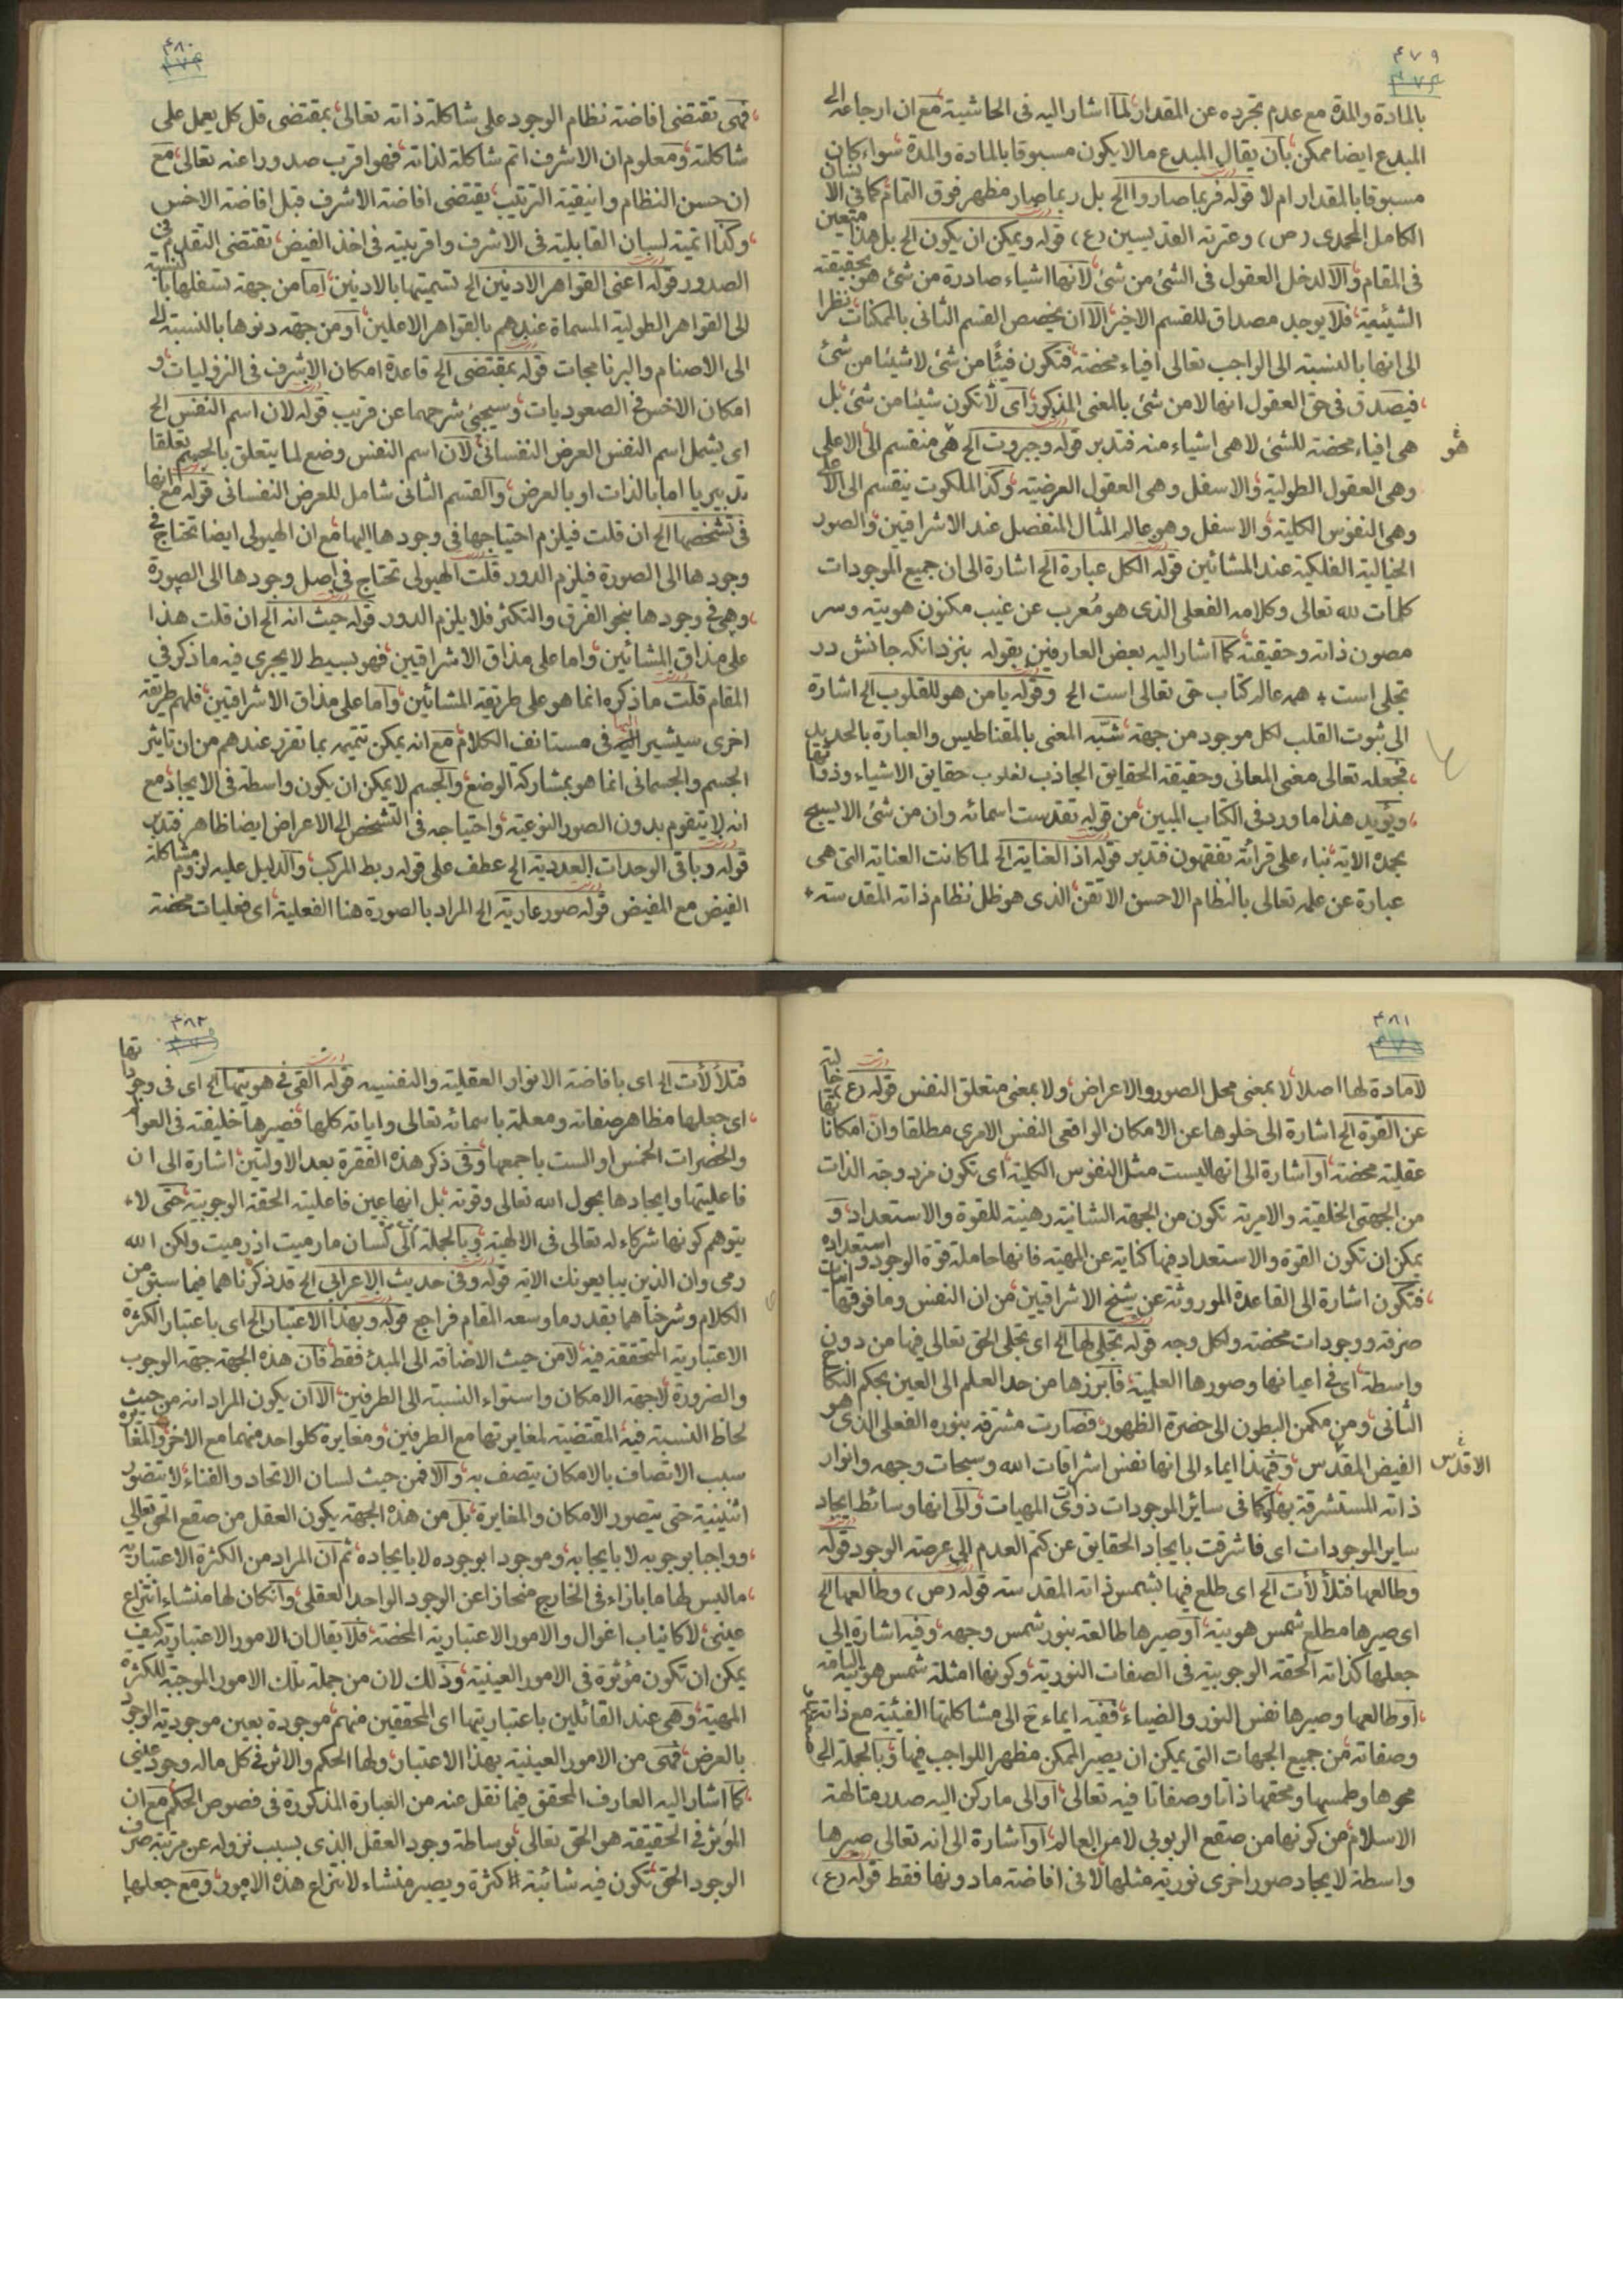 ۴۷۹
بالمادة والمدة مع عدم تجرده عن المقدار لما اشار اليه فى الحاشية مع ان ارجاعه الى
المبدع ايضا ممكن بان يقال المبدع مالا يكون مسبوقا بالمادة والمدة سواء كان
مسبوقا بالمقدار ام لا قوله فربما صاروا الخ بل ربما صار مظهر فوق التمام كما فى الانسان
الكامل المحمدى (ص) وعترته القديسين (ع) قوله ويمكن ان يكون الخ بل هذا متعين
فى المقام والا لدخل العقول فى الشئ من شئ لانها اشياء صادرة من شئ هو بحقيقته
الشيئية فلا يوجد مصداق للقسم الاخير الا ان يخصص القسم الثانى بالممكنات نظرا
الى انها بالنسبة الى الواجب تعالى افياء محضة فتكون فيئا من شئ لا شيئا من شئ
فيصدق فى حق العقول انها لا من شئ بالمعنى المذكور اى لا تكون شيئا من شئ بل
هى افياء محضة للشئ لا هى اشياء منه فتدبر قوله وجبروت الخ هو منقسم الى الاعلى
وهى العقول الطولية والاسفل وهى العقول العرضية وكذا الملكوت ينقسم الى الاعلى
وهى النفوس الكلية والاسفل وهو عالم المثال المنفصل عند الاشراقيين والصور
الخيالية الفلكية عند المشائين قوله الكل عبارة الخ اشارة الى ان جميع الموجودات
كلمات لله تعالى وكلامه الفعلى الذى هو مُعرب عن غيب مكنون هويته وسر
مصون ذاته وحقيقته كما اشار اليه بعض العارفين بقوله بنزد انكه جانش در
تجلى است + همه عالم كتاب حق تعالى است الخ وقوله يا من هو للقلوب الخ اشارة
الى ثبوت القلب لكل موجود من جهة شبّه المعنى بالمقناطيس والعبارة بالحديد
فجعله تعالى مغنى المعانى وحقيقة الحقايق الجاذب لقلوب حقايق الاشياء وذواتها
ويؤيد هذا ما ورد فى الكتاب المبين من قوله تقدست اسمائه وان من شئ الا يسبح
بحمده الاية بناء على قرائة تفقهون فتدبر قوله اذ العناية الخ لما كانت العناية التى هى
عبارة عن علمه تعالى بالنظام الاحسن الاتقن الذى هو ظل نظام ذاته المقدسة +
۴۸۰
فهى تقتضى افاضة نظام الوجود على شاكلة ذاته تعالى بمقتضى قل كل يعمل على
شاكلته ومعلوم ان الاشرف اتم شاكلة لذاته فهو اقرب صدورا عنه تعالى مع
ان حسن النظام وانيقية الترتيب يقتضى افاضة الاشرف قبل افاضة الاخس
وكذا اتمية لسان القابلية فى الاشرف واقربيته فى اخذ الفيض تقتضى التقدم فى
الصدور قوله اعنى القواهر الادنين الخ تسميتها بالادنين اما من جهة تسفلها بالنسبة
الى القواهر الطولية المسماة عندهم بالقواهر الاعلين او من جهة دنوها بالنسبة الى
الى الاصنام والبرنامجات قوله بمقتضى الخ قاعدة امكان الاشرف فى النزوليات و
امكان الاخس فى الصعوديات وسيجئ شرحهما عن قريب قوله لان اسم النفس الخ
اى يشمل اسم النفس العرض النفسانى لان اسم النفس وضع لما يتعلق بالجسم تعلقا
تدبيريا اما بالذات او بالعرض والقسم الثانى شامل للعرض النفسانى قوله مع انها
فى تشخصها الخ ان قلت فيلزم احتياجها فى وجودها اليها مع ان الهيولى ايضا تحتاج فى
وجودها الى الصورة فيلزم الدور قلت الهيولى تحتاج فى اصل وجودها الى الصورة
وهى فى وجودها بنحو الفرق والتكثر فلا يلزم الدور قوله حيث انه الخ ان قلت هذا
على مذاق المشائين واما على مذاق الاشراقيين فهو بسيط لا يجرى فيه ما ذكر فى
المقام قلت ما ذكره انما هو على طريقة المشائين واما على مذاق الاشراقيين فلهم طريقة
اخرى سيشير اليها فى مستانف الكلام مع انه يمكن تتميمه بما تقرر عندهم من ان تاثير
الجسم والجسمانى انما هو بمشاركة الوضع والجسم لا يمكن ان يكون واسطة فى الايجاد مع
انه لا يتقوم بدون الصور النوعية واحتياجه فى التشخص الى الاعراض ايضا ظاهر فتدبر
قوله وباقى الوحدات العددية الخ عطف على قوله ربط المركب والدليل عليه لزوم مشاكلة
الفيض مع المفيض قوله صور عارية الخ المراد بالصورة هنا الفعلية اى فعليات محضة
۴۸۱
لا مادة لها اصلا لا بمعنى محل الصور والاعراض ولا بمعنى متعلق النفس قوله (ع) خالية
عن القوة الخ اشارة الى خلوها عن الامكان الواقعى النفس الامرى مطلقا وان امكاناتها
عقلية محضة او اشارة الى انها ليست مثل النفوس الكلية اى تكون مزدوجة الذات
من الجهتى الخلقية والامرية تكون من الجهة الثانية رهينة للقوة والاستعداد و
يمكن ان تكون القوة والاستعداد فيها كناية عن المهية فانها حاملة قوة الوجود واستعداده
فتكون اشارة الى القاعدة الموروثة عن شيخ الاشراقيين من ان النفس وما فوقها انيات
صرفة ووجودات محضة ولكل وجه قوله تجلى لها الخ اى تجلى الحق تعالى فيها من دون
واسطة اى فى اعيانها وصورها العلمية فابرزها من حد العلم الى العين بحكم النكاح
الثانى ومن مكمن البطون الى حضرة الظهور فصارت مشرقة بنوره الفعلى الذى هو
الفيض المقدس وفى هذا ايماء الى انها نفس اشراقات الله وسبحات وجهه وانوار
ذاته المستشرقة بها كما فى سائر الموجودات ذوى المهيات والى انها وسائط ايجاد
ساير الموجودات اى فاشرقت بايجاد الحقايق عن كتم العدم الى عرصة الوجود قوله
وطالعها فتلألأت الخ اى طلع فيها بشمس ذاته المقدسة قوله (ص) وطالعها الخ
اى صيرها مطلع شمس هويته او صيرها طالعة بنور شمس وجهه وفيه اشارة الى
جعلها كذاته الحقة الوجوبية فى الصفات النورية وكونها امثلة شمس هويته الباقية
او طالعها وصيرها نفس النور والضياء ففيه ايماء ح الى مشاكلتها الفيئية مع ذاته
وصفاته من جميع الجهات التى يمكن ان يصير الممكن مظهرا للواجب فيها وبالجملة الى
محوها وطمسها ومحقها ذاتا وصفاتا فيه تعالى او الى ما ركن اليه صدر متالهة
الاسلام من كونها من صقع الربوبى لا من العالم او اشارة الى انه تعالى صيرها
واسطة لايجاد صور اخرى نورية مثلها لا فى افاضة ما دونها فقط قوله (ع)
۴۸۲
فتلألأت الخ اى بافاضة الانوار العقلية والنفسية قوله القى فى هويتها الخ اى فى وجوداتها
اى جعلها مظاهر صفاته ومعلمة باسمائه تعالى واياته كلها فصيرها خليفته فى العوالم
والحضرات الخمس او الست باجمعها وفى ذكر هذه الفقرة بعد الاوليين اشارة الى ان
فاعليتها وايجادها بحول الله تعالى وقوته بل انها عين فاعلية الحقة الوجوبية حتى لا +
يتوهم كونها شركاء له تعالى فى الالهية وبالجملة الى لسان ما رميت اذ رميت ولكن الله
رمى وان الذين يبايعونك الاية قوله وفى حديث الاعرابى الخ قد ذكرناهما فيما سبق من
الكلام وشرحناهما بقدر ما وسعه المقام فراجع قوله وبهذا الاعتبار الخ اى باعتبار الكثرة
الاعتبارية المتحققة فيه لا من حيث الاضافة الى المبدء فقط فان هذه الجهة جهة الوجوب
والضرورة لا جهة الامكان واستواء النسبة الى الطرفين الا ان يكون المراد انه من حيث
لحاظ النسبة فيه المقتضية لمغايرتها مع الطرفين ومغايرة كل واحد منهما مع الاخر والمغايرة
سبب الاتصاف بالامكان يتصف به والا فمن حيث لسان الاتحاد والفناء لا يتصور
اثنينية حتى يتصور الامكان والمغايرة بل من هذه الجهة يكون العقل من صقع الحق تعالى
وواجبا بوجوبه لا بايجابه وموجودا بوجوده لا بايجاده ثم ان المراد من الكثرة الاعتبارية
ما ليس لها ما بازاء فى الخارج منحازا عن الوجود الواحد العقلى وان كان لها منشاء انتزاع
عينى لا كانياب اغوال والامور الاعتبارية المحضة فلا يقال ان الامور الاعتبارية كيف
يمكن ان تكون مؤثرة فى الامور العينية وذلك لان من جملة تلك الامور الموجبة للكثرة
المهية وهى عند القائلين باعتباريتها اى المحققين منهم موجودة بعين موجودية الوجود
بالعرض فهى من الامور العينية بهذا الاعتبار ولها الحكم والاثر فى كل ماله وجود عينى
كما اشار اليه العارف المحقق فيما نقل عنه من العبارة المذكورة فى فصوص الحكم مع ان
المؤثر فى الحقيقة هو الحق تعالى بوساطة وجود العقل الذى بسبب نزوله عن مرتبة صرف
الوجود الحق تكون فيه شائبة كثرة ويصير منشاء لانتزاع هذه الامور ومع جعلها